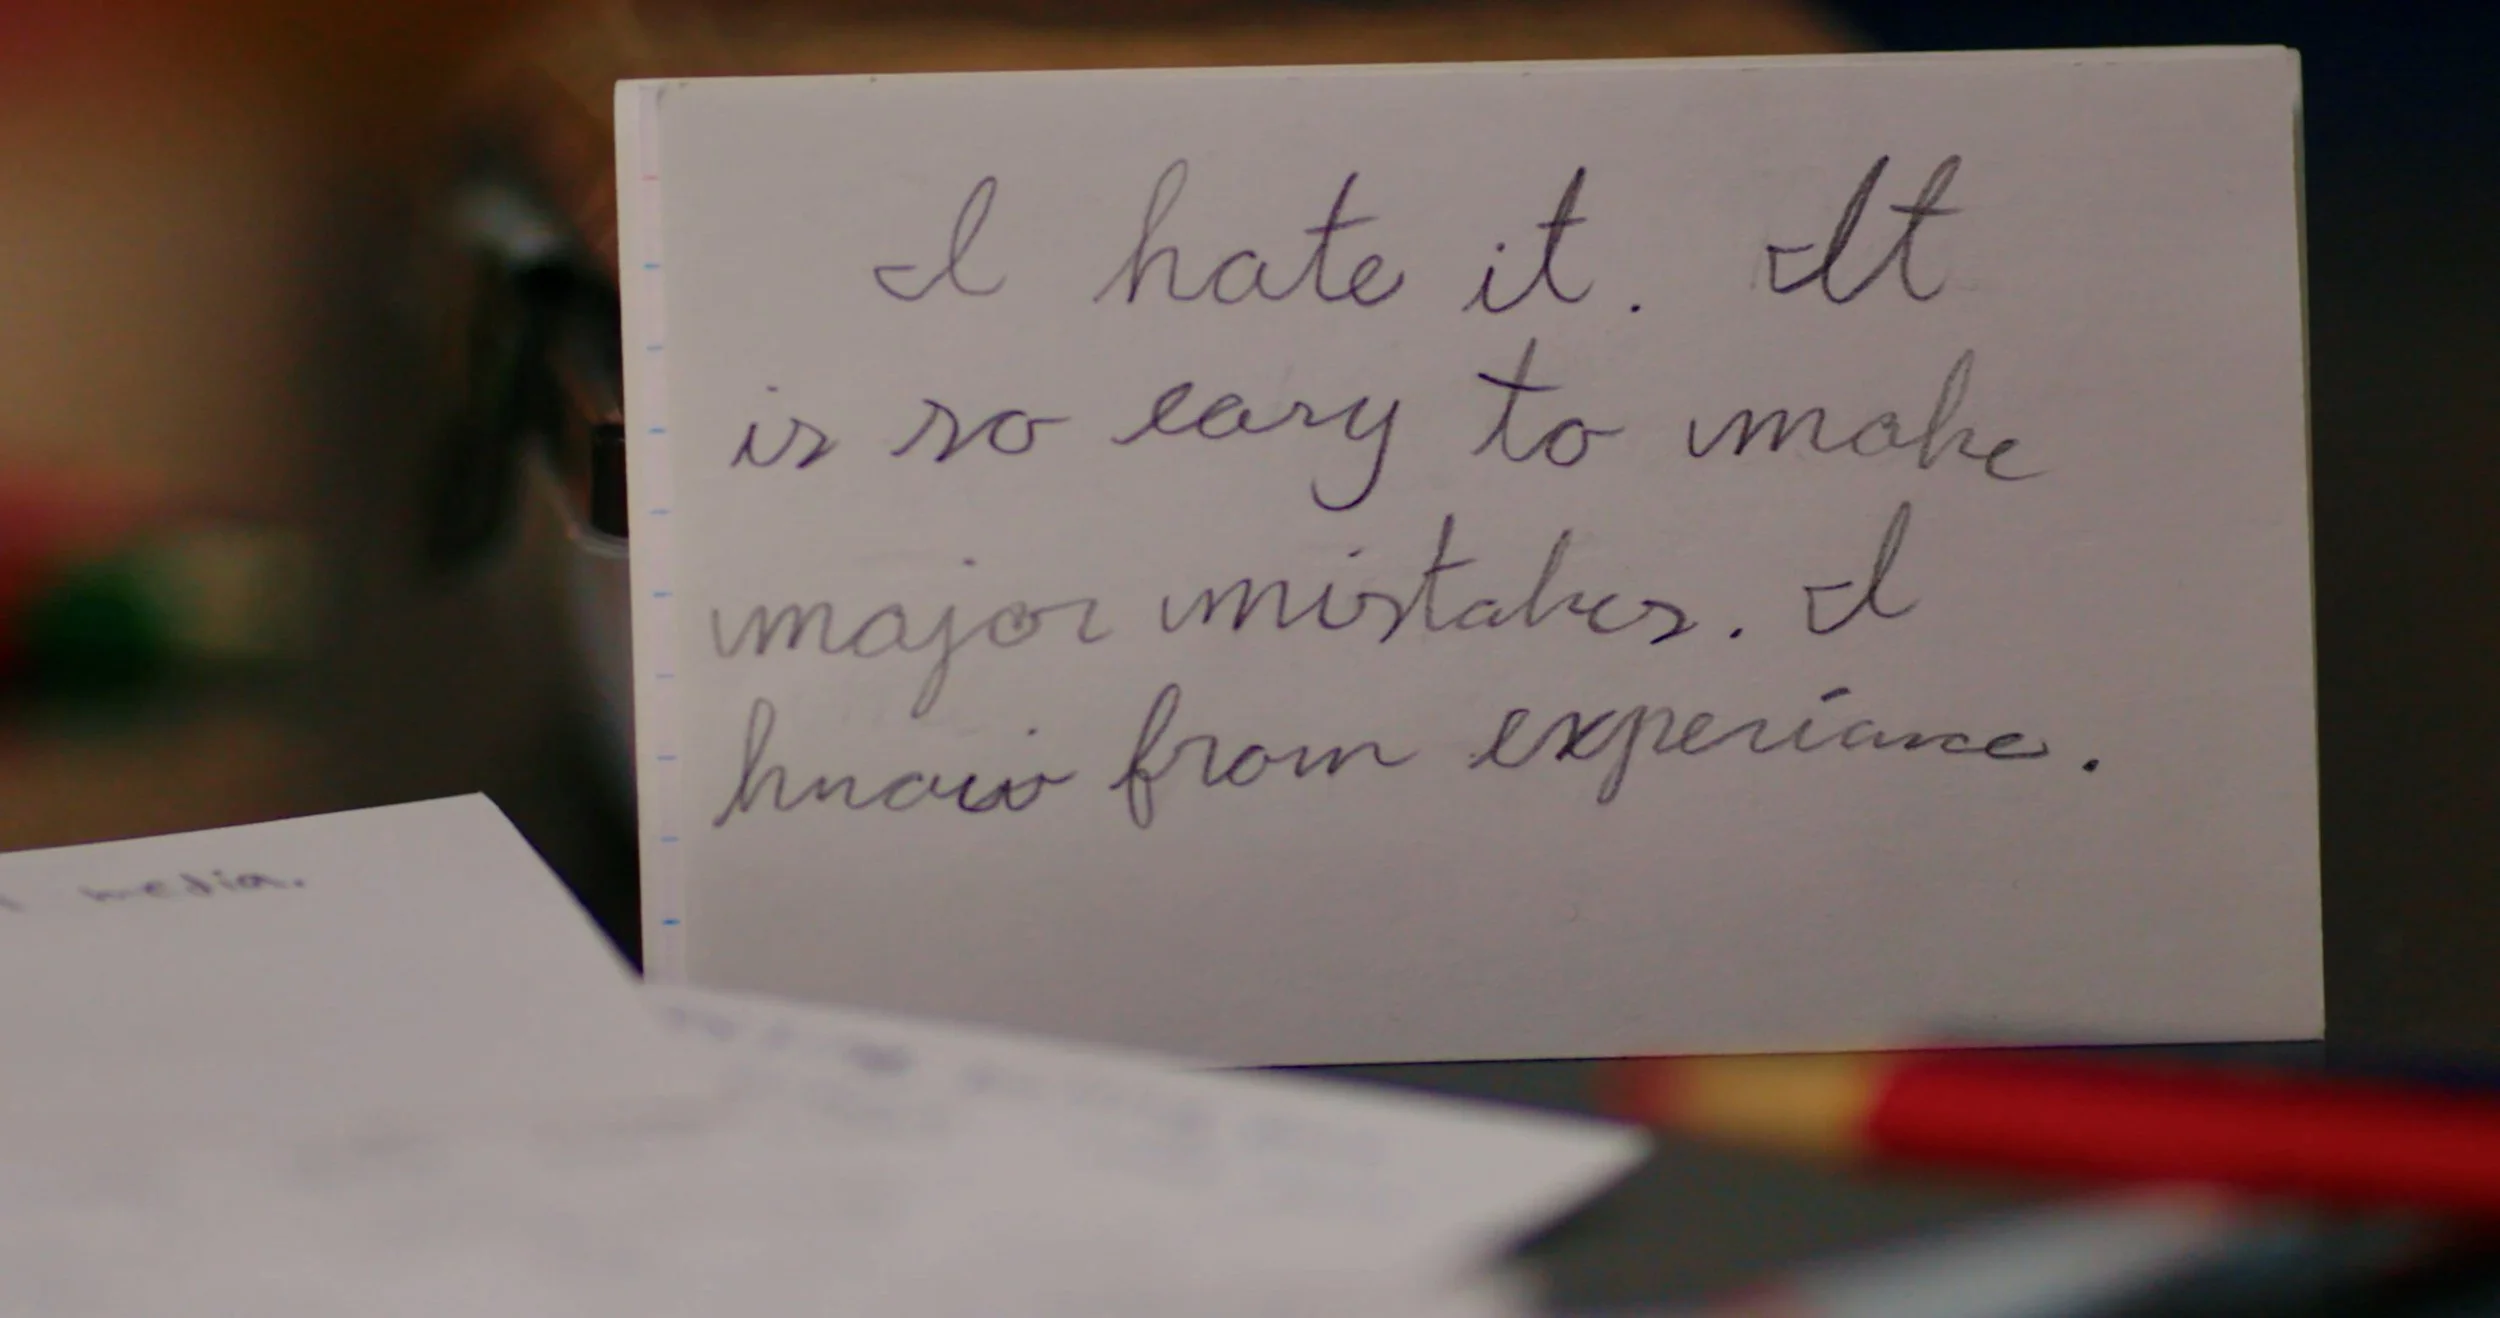 I hate it. It
is so easy to make
major mistakes. I
know from experiance.
media.